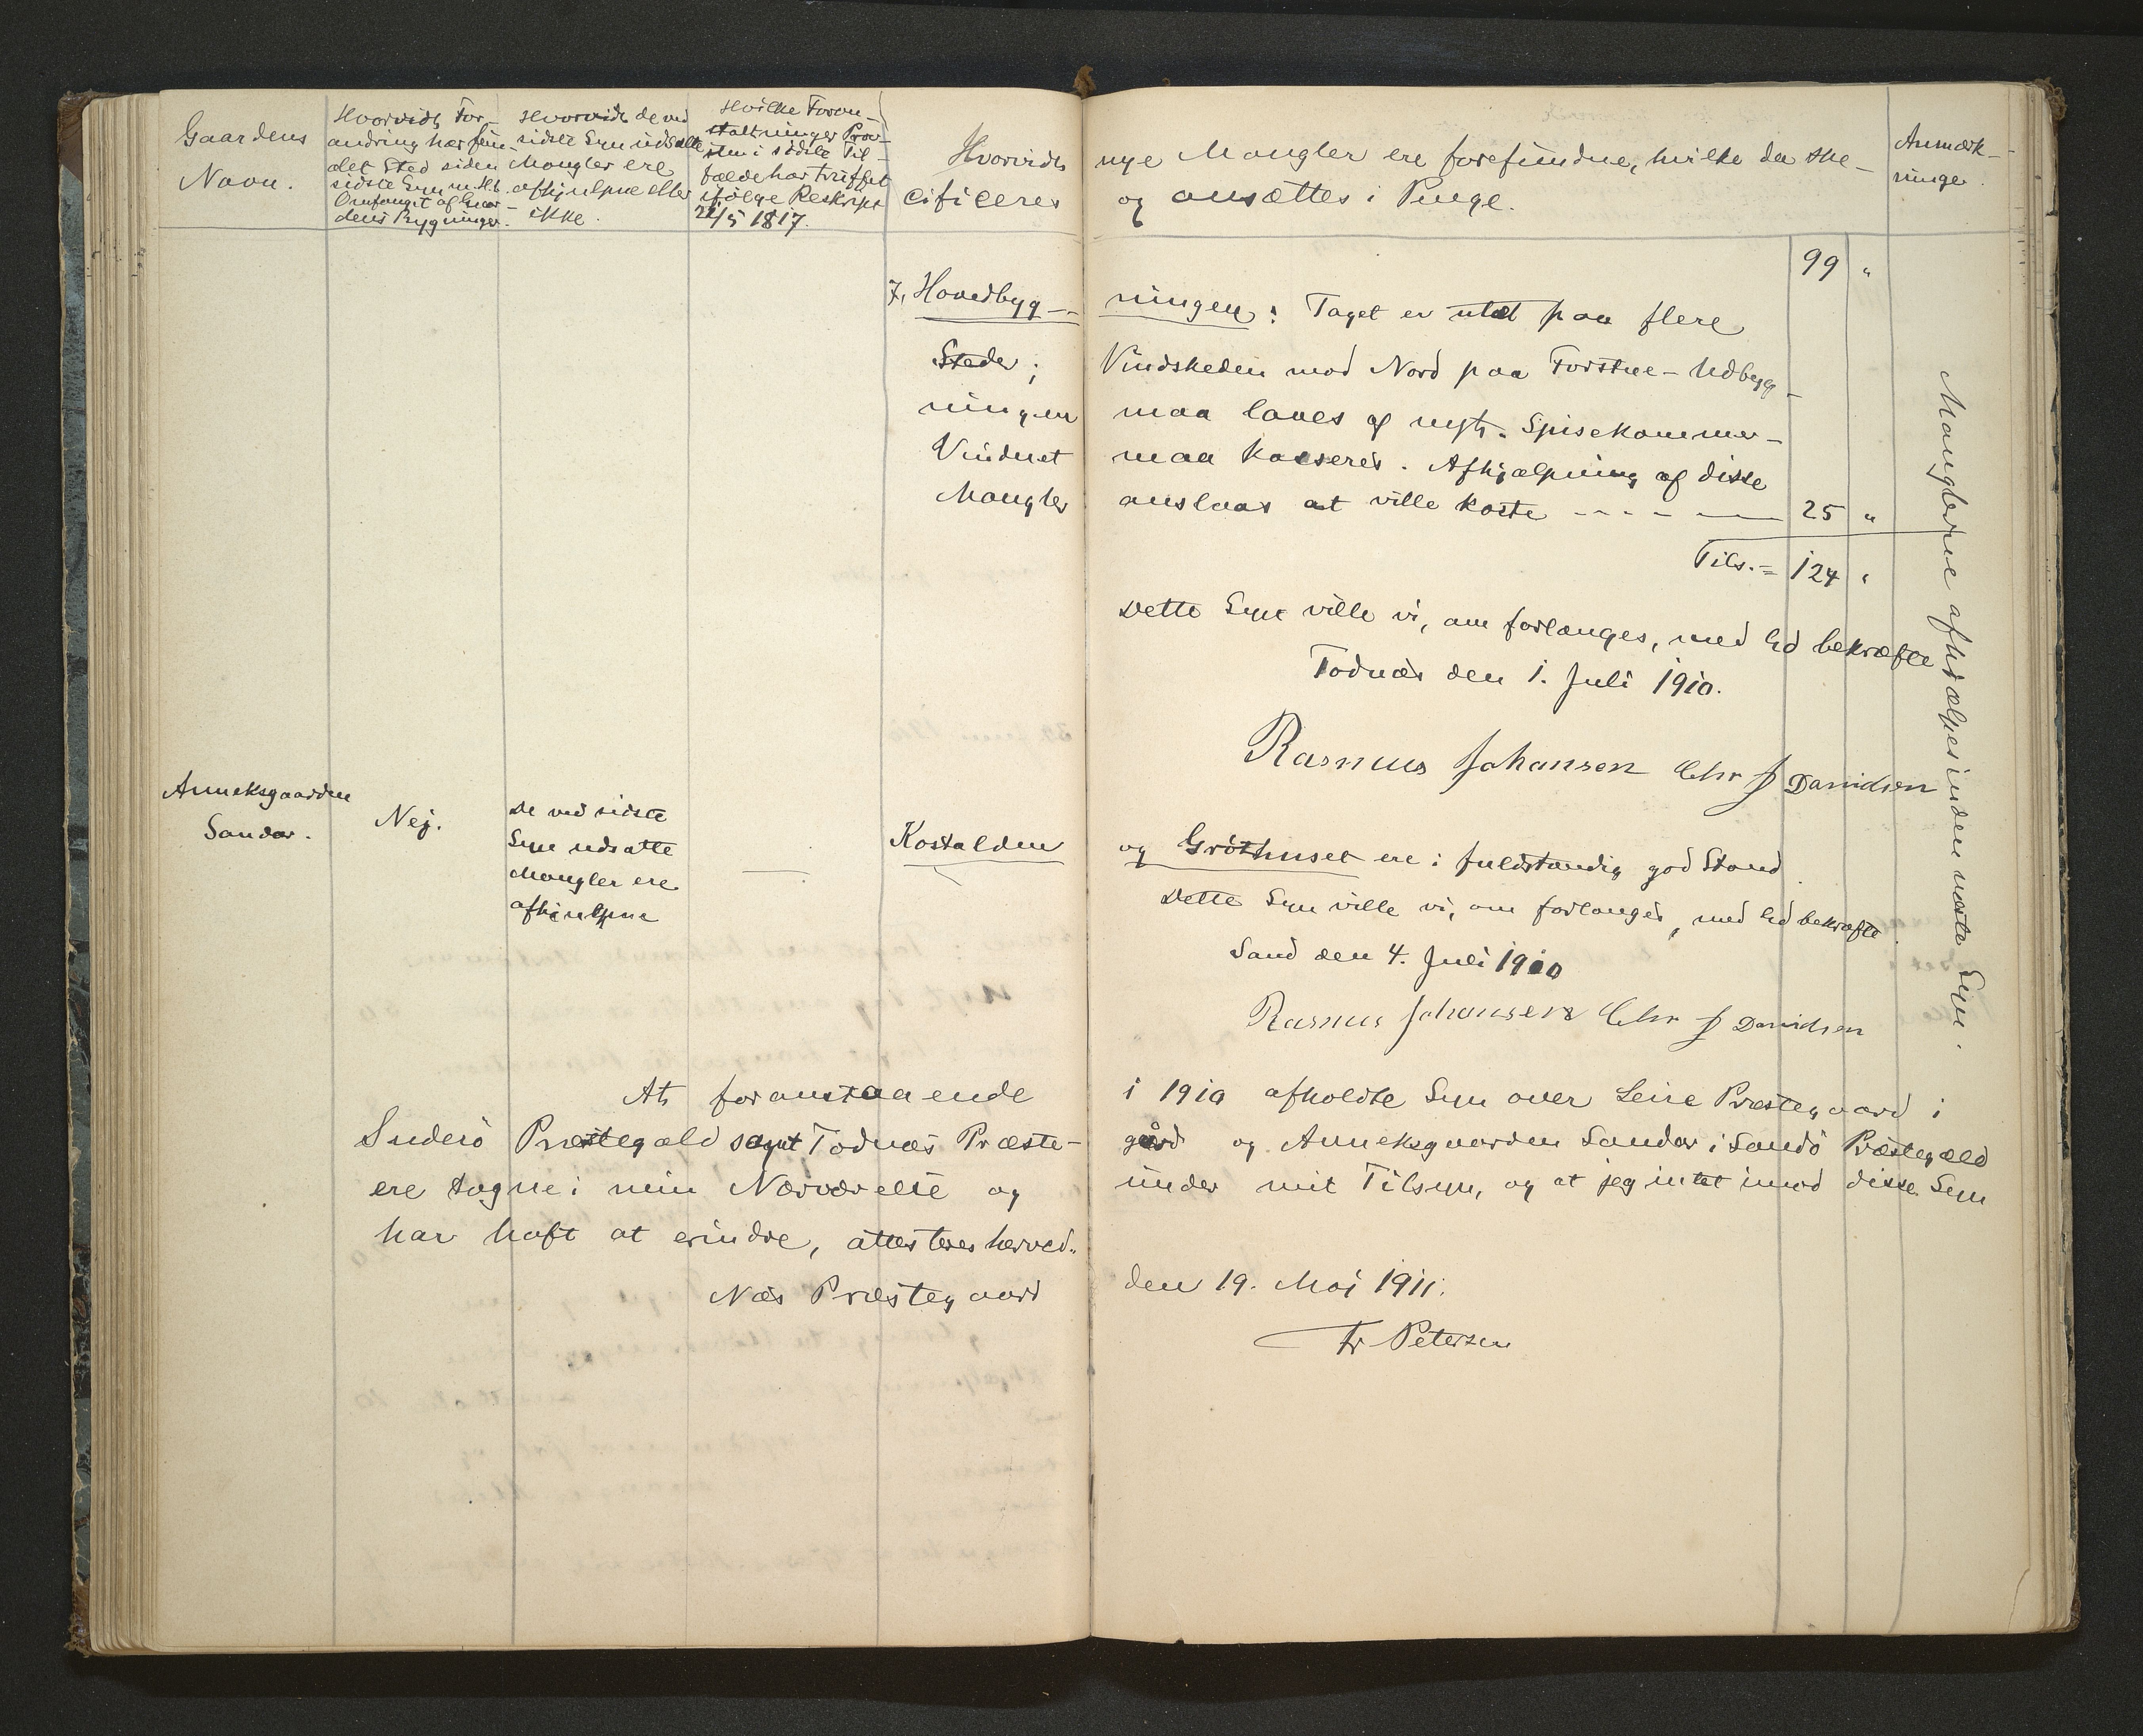 Gaardens
Navn.
Hvorvidt For-
andring har fun-
det Sted siden
sidste Syn m. Ht.
Omfanget af Gaar-
dens Bygninger.
Hvorvidt de ved
sidste Syn udsatte
Mangler ere
afhjulpne eller
ikke.
Hvilke Foran-
staltninger Prov-
sten i sidste Til-
fælde har truffet
ifölge Reskript
21/5 1817.
Hvorvidt nye Mangler ere forefundne, hvilke da spe-
cificeres og ansættes i Penge.
Anmærk-
ninger.
99 "
7, Hovedbyg- ningen: Taget er utæt paa flere
Steder; Vindskeden mod Nord paa Forstue-Udbyg-
ningen maa laves af nyt. Spisekammer-
Vinduet maa kasseres. Afhjælpning af disse
Mangler anslaas at ville koste - - - - 25 "
Tils. = 124 "
Dette Syn ville vi, om forlanges, med Ed bekræfte
Todnæs den 1. Juli 1910.
Rasmus Johansen Chr J Danidsen
Manglerne afhjælpes inden næste Syn.
Anneksgaarden
Sandar.
Nej.
De ved sidste
Syn udsatte
Mangler ere
afhjulpne
—
Kostalden og Gröthuset ere i fuldstændig god Stand.
Dette Syn ville vi, om forlanges, med Ed bekræfte.
Sand den 4. Juli 1910
Rasmus Johansen Chr J Danidsen
At foranstaaende i 1910 afholdte Syn over Leire Præstegaard i
Suderö Præstegæld samt Todnæs Præste- gård og Anneksgaarden Sandar i Sandö Præstegæld
ere tagne i min Nærværelse og under mit Tilsyn, og at jeg intet imod disse Syn
har haft at erindre, attesteres herved.
Næs Præstegaard den 19. Maj 1911.
Fr Petersen